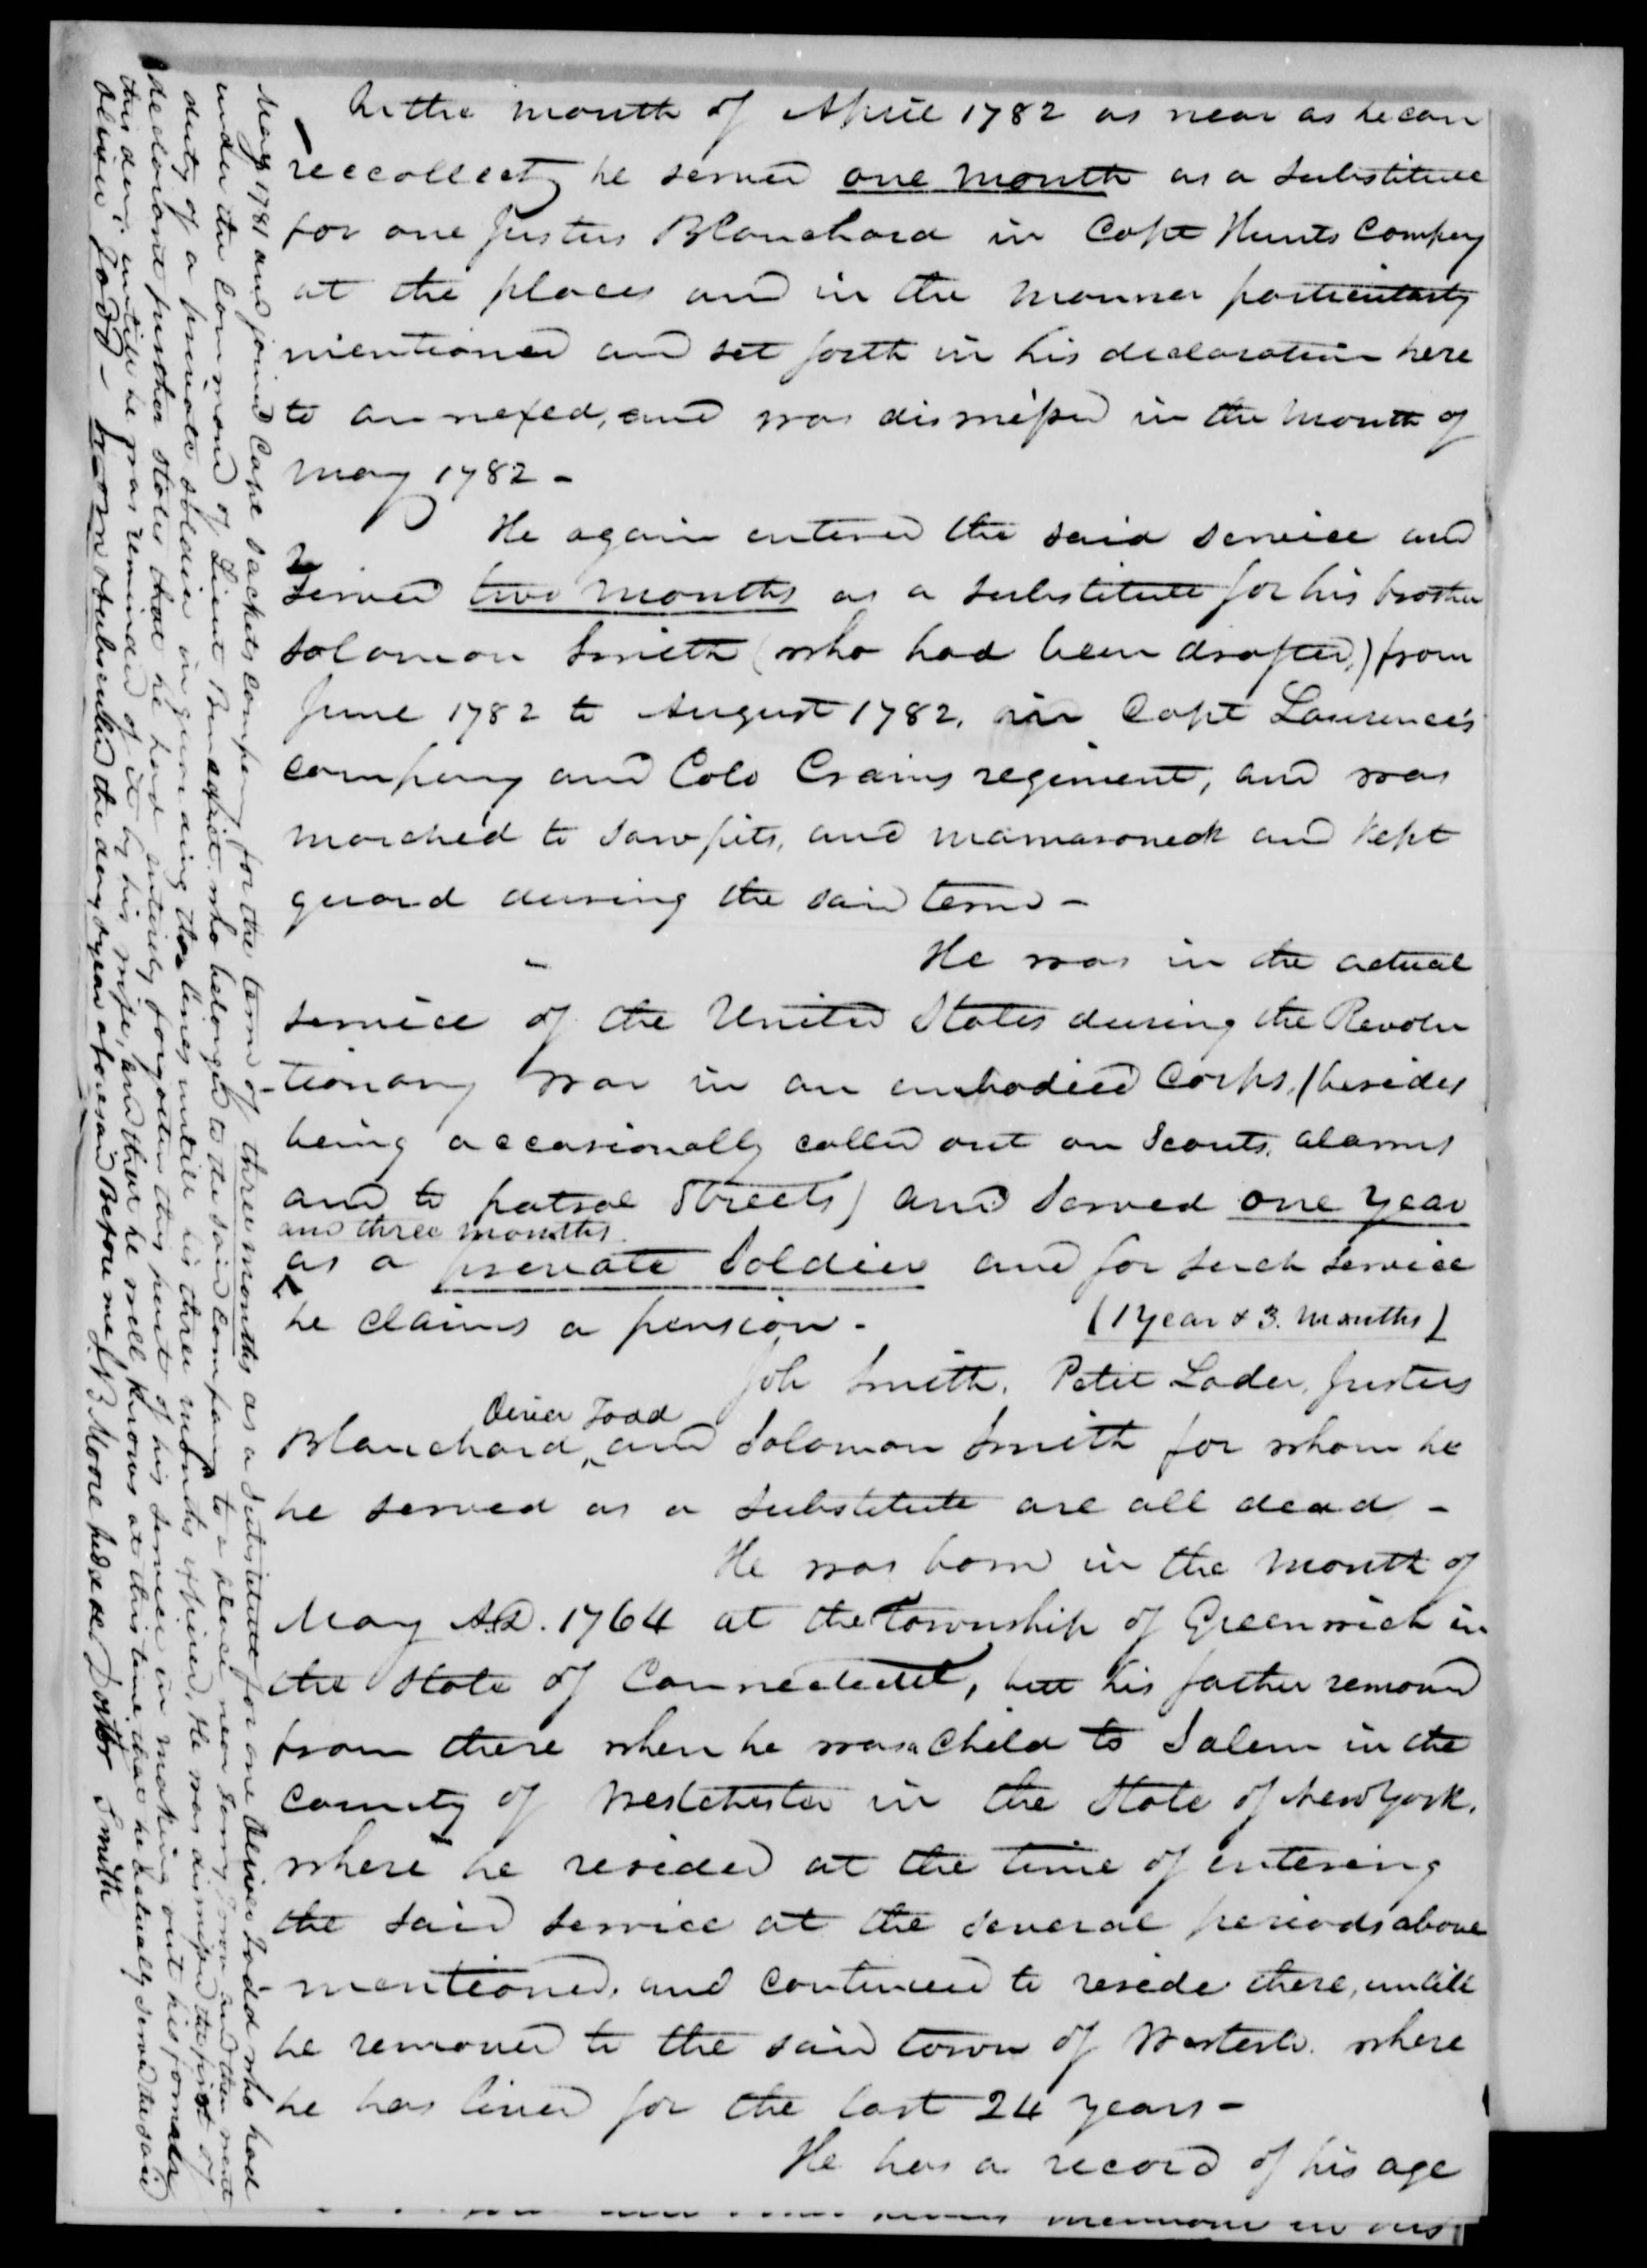 In the month of April 1782 as near as he can
reccollect, he served one month as a substitute
for one Justus Blanchard in Capt Hunts Company
at the places and in the manner particularly
mentioned and set forth in his declaration here
to annexed, and was dismissed in the month of
May 1782 -
He again entered the said service and
served two months as a substitute for his brother
Solomon Smith (who had been drafted,) from
June 1782 to August 1782, in Capt Lawrence's
company and Colo Crains regiment, and was
marched to Sawpits, and mamaroneck and kept
guard during the said term -
He was in the actual
service of the United States during the Revolu
tionary war in an embodied Corps, (besides
being occasionally called out on Scouts, alarms
and to patrol Streets) and served one year
and three months
as a private Soldier and for such service
he claims a pension -
(1 year & 3. months)
Job Smith, Petit Loder, Justus
Oliver Todd
Blanchard, and Solomon Smith for whom he
he served as a substitute are all dead -
He was born in the month of
May A.D. 1764 at the Township of Greenwich in
the State of Connecticut, but his father removed
from there when he was a Child to Salem in the
County of Westchester in the State of New York,
where he resided at the time of entering
the said service at the several periods above
mentioned, and continued to reside there, untill
he removed to the said town of Westerlo. where
he has lived for the last 24 years -
He has a record of his age
May 1781 and joined Capt Sackets company for the term of three months as a substitute for one Oliver Todd who had
under the command of Lieut Burdsit who belonged to the said Company to a place near and then went
duty of a private soldier in guarding the lines untill his three months expired, He was dismissed the first of
declarant further states that he had entirely forgotten this part of his service in making out his former
this day, untill he was reminded of it by his wife, and that he well knows at this time that he actually served the said
Oliver Todd - Sworn & subscribed the day & year aforesaid Before me Moore
Smith